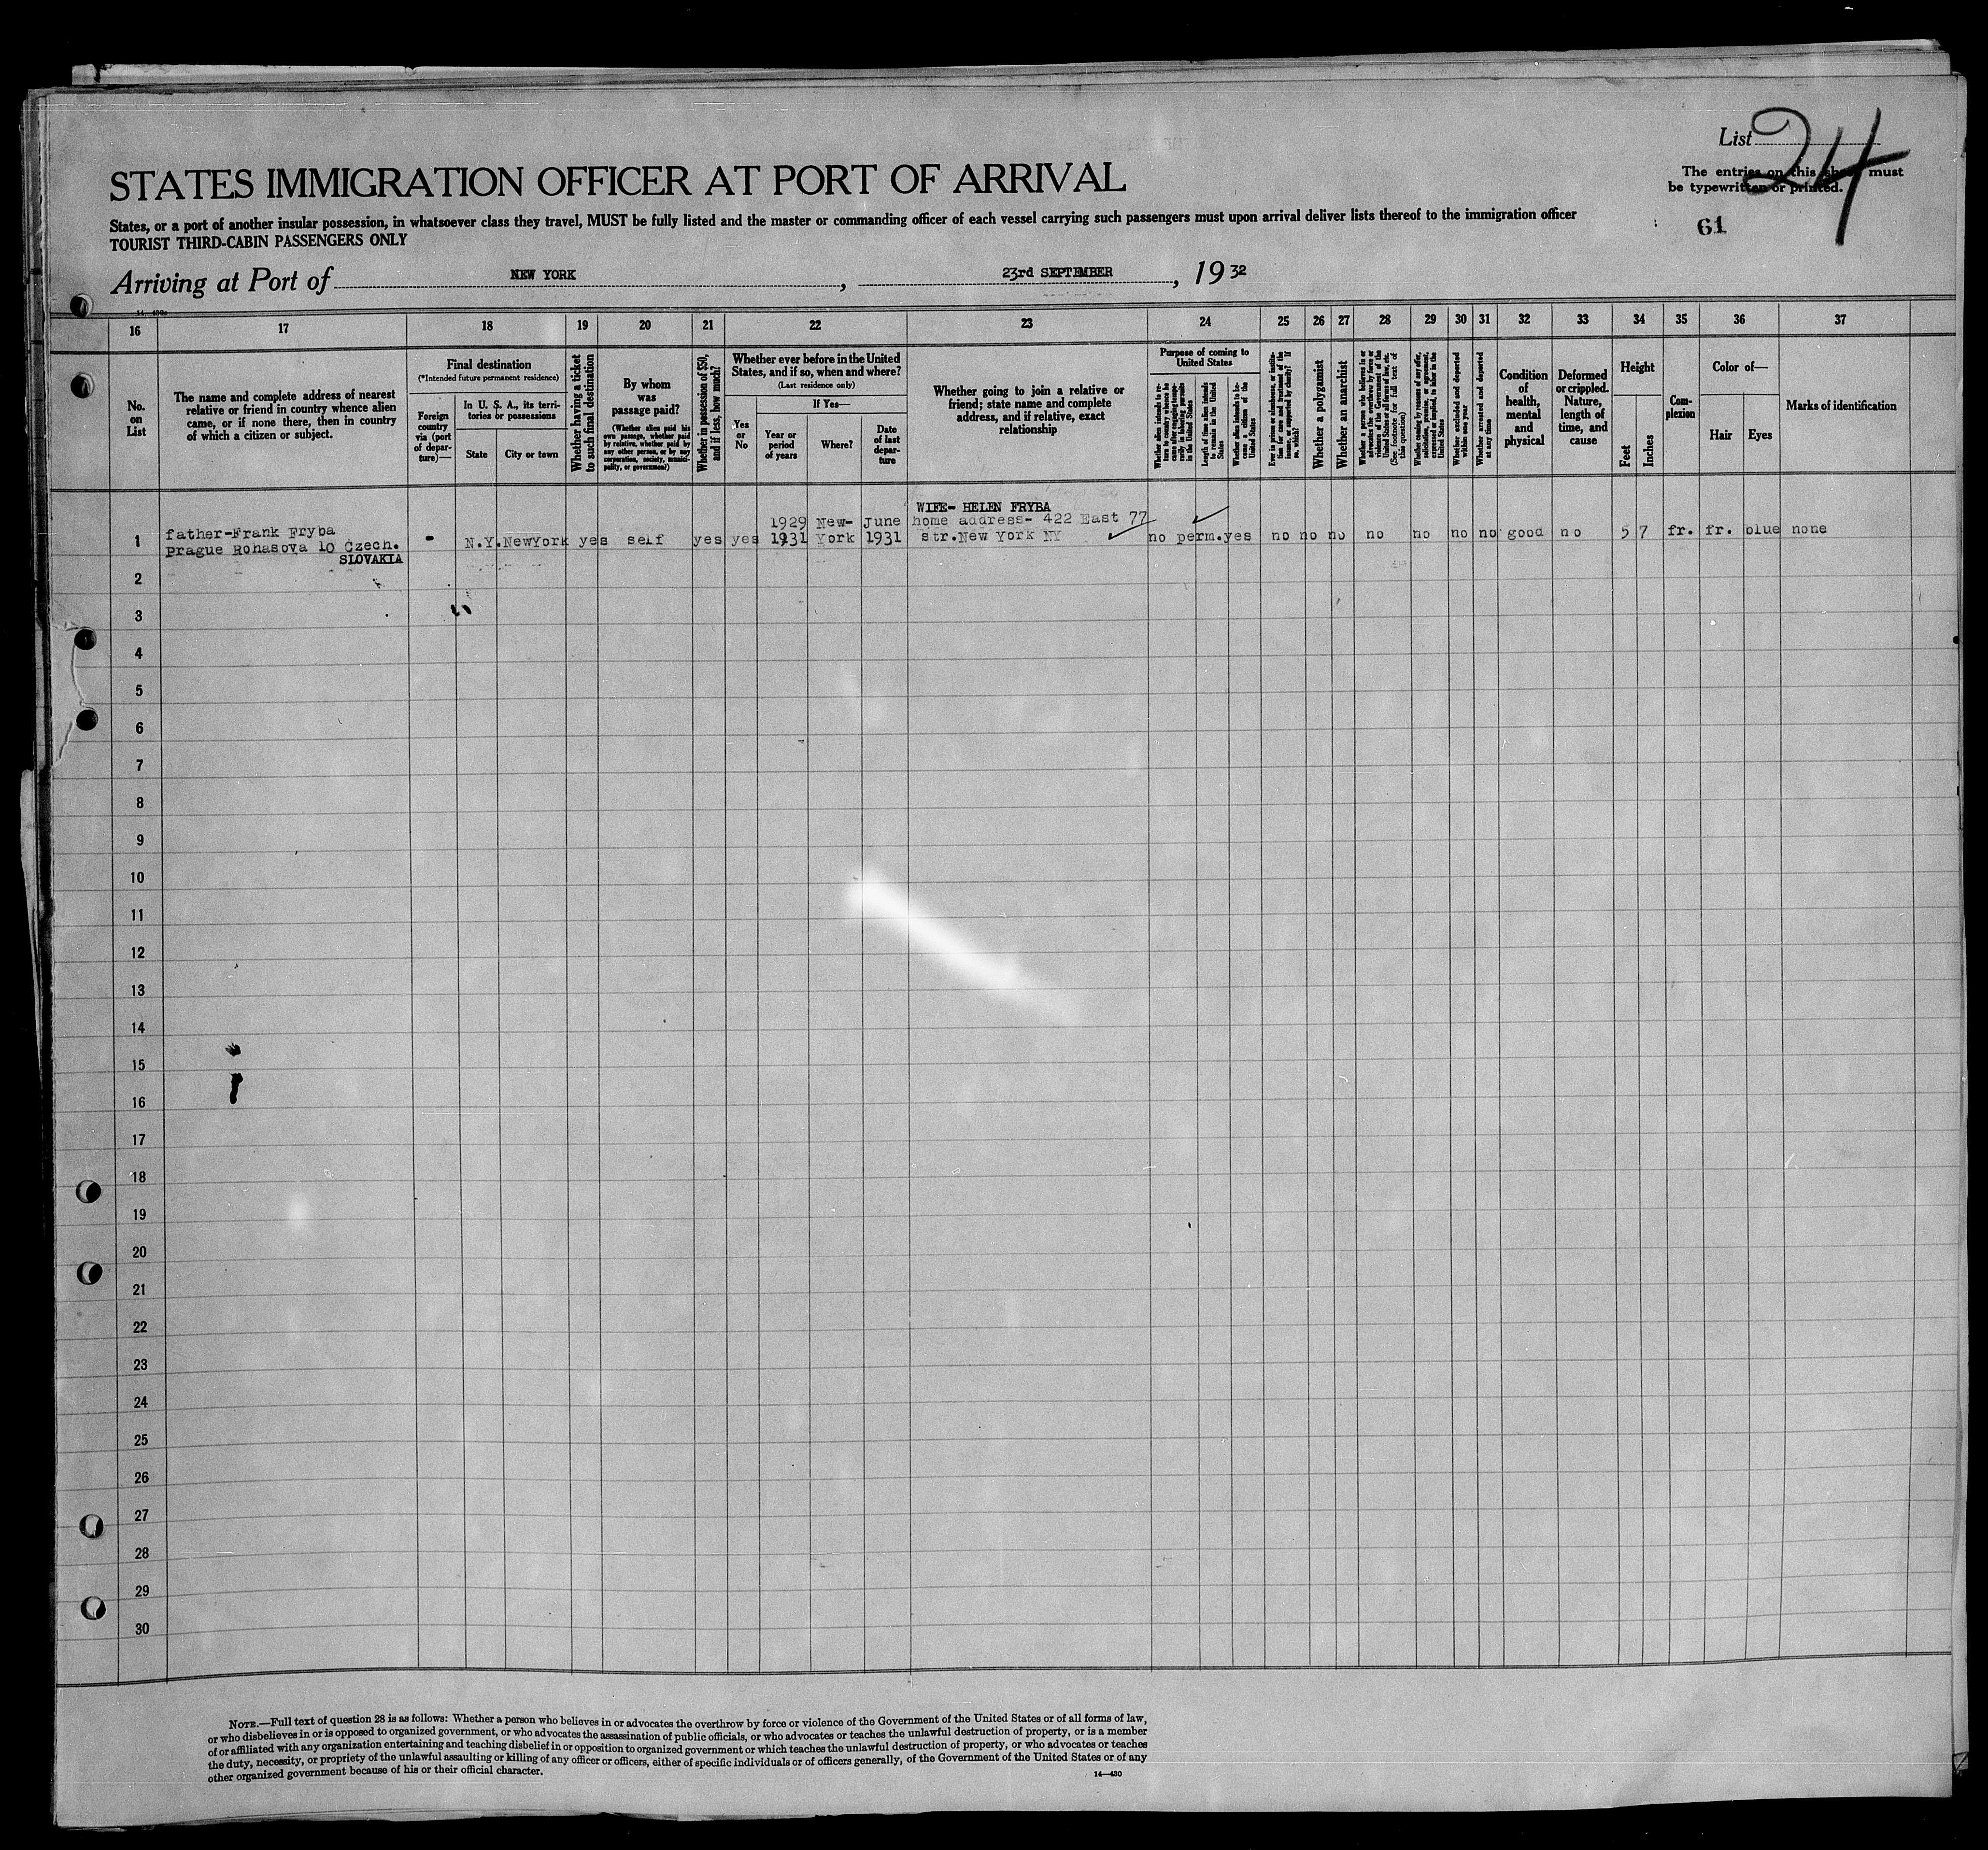 List 24
The entries on this sheet must
be typewritten or printed.
61
STATES IMMIGRATION OFFICER AT PORT OF ARRIVAL
States, or a port of another insular possession, in whatsoever class they travel, MUST be fully listed and the master or commanding officer of each vessel carrying such passengers must upon arrival deliver lists thereof to the immigration officer
TOURIST THIRD-CABIN PASSENGERS ONLY
Arriving at Port of NEW YORK, 23rd SEPTEMBER, 19 32
16 17 18 19 20 21 22 23 24 25 26 27 28 29 30 31 32 33 34 35 36 37
No.
on
List
The name and complete address of nearest
relative or friend in country whence alien
came, or if none there, then in country
of which a citizen or subject.
Final destination
(*Intended future permanent residence)
Foreign
country
via (port
of depar-
ture)—
In U. S. A., its terri-
tories or possessions
State
City or town
Whether having a ticket
to such final destination
By whom
was
passage paid?
(Whether alien paid his
own passage, whether paid
by relative, whether paid by
any other person, or by any
corporation, society, munici-
pality, or government)
Whether in possession of $50,
and if less, how much?
Whether ever before in the United
States, and if so, when and where?
(Last residence only)
Yes
or
No
If Yes—
Year or
period
of years
Where?
Date
of last
depar-
ture
Whether going to join a relative or
friend; state name and complete
address, and if relative, exact
relationship
Purpose of coming to
United States
Whether alien intends to re-
turn to country whence he
came after engaging tempo-
rarily in laboring pursuits
in the United States
Length of time alien intends
to remain in the United
States
Whether alien intends to be-
come a citizen of the
United States
Ever in prison or almshouse, or institu-
tion for care and treatment of the
insane, or supported by charity? If
so, which?
Whether a polygamist
Whether an anarchist
Whether a person who believes in or
advocates the overthrow by force or
violence of the Government of the
United States or all forms of law, etc.
(See footnote for full text of
this question)
Whether coming by reason of any offer,
solicitation, promise, or agreement,
expressed or implied, to labor in the
United States
Whether excluded and deported
within one year
Whether arrested and deported
at any time
Condition
of
health,
mental
and
physical
Deformed
or crippled.
Nature,
length of
time, and
cause
Height
Feet
Inches
Com-
plexion
Color of—
Hair
Eyes
Marks of identification
WIFE- HELEN FRYBA
father-Frank Fryba 1929 New- June home address- 422 East 77
1 Prague Rohasova 10 Czech. - N.Y. NewYork yes self yes yes 1931 York 1931 str.New York NY no perm. yes no no no no no no no good no 5 7 fr. fr. blue none
SLOVAKIA
2
3
4
5
6
7
8
9
10
11
12
13
14
15
16
17
18
19
20
21
22
23
24
25
26
27
28
29
30
NOTE.—Full text of question 28 is as follows: Whether a person who believes in or advocates the overthrow by force or violence of the Government of the United States or of all forms of law,
or who disbelieves in or is opposed to organized government, or who advocates the assassination of public officials, or who advocates or teaches the unlawful destruction of property, or is a member
of or affiliated with any organization entertaining and teaching disbelief in or opposition to organized government or which teaches the unlawful destruction of property, or who advocates or teaches
the duty, necessity, or propriety of the unlawful assaulting or killing of any officer or officers, either of specific individuals or of officers generally, of the Government of the United States or of any
other organized government because of his or their official character.
14—430